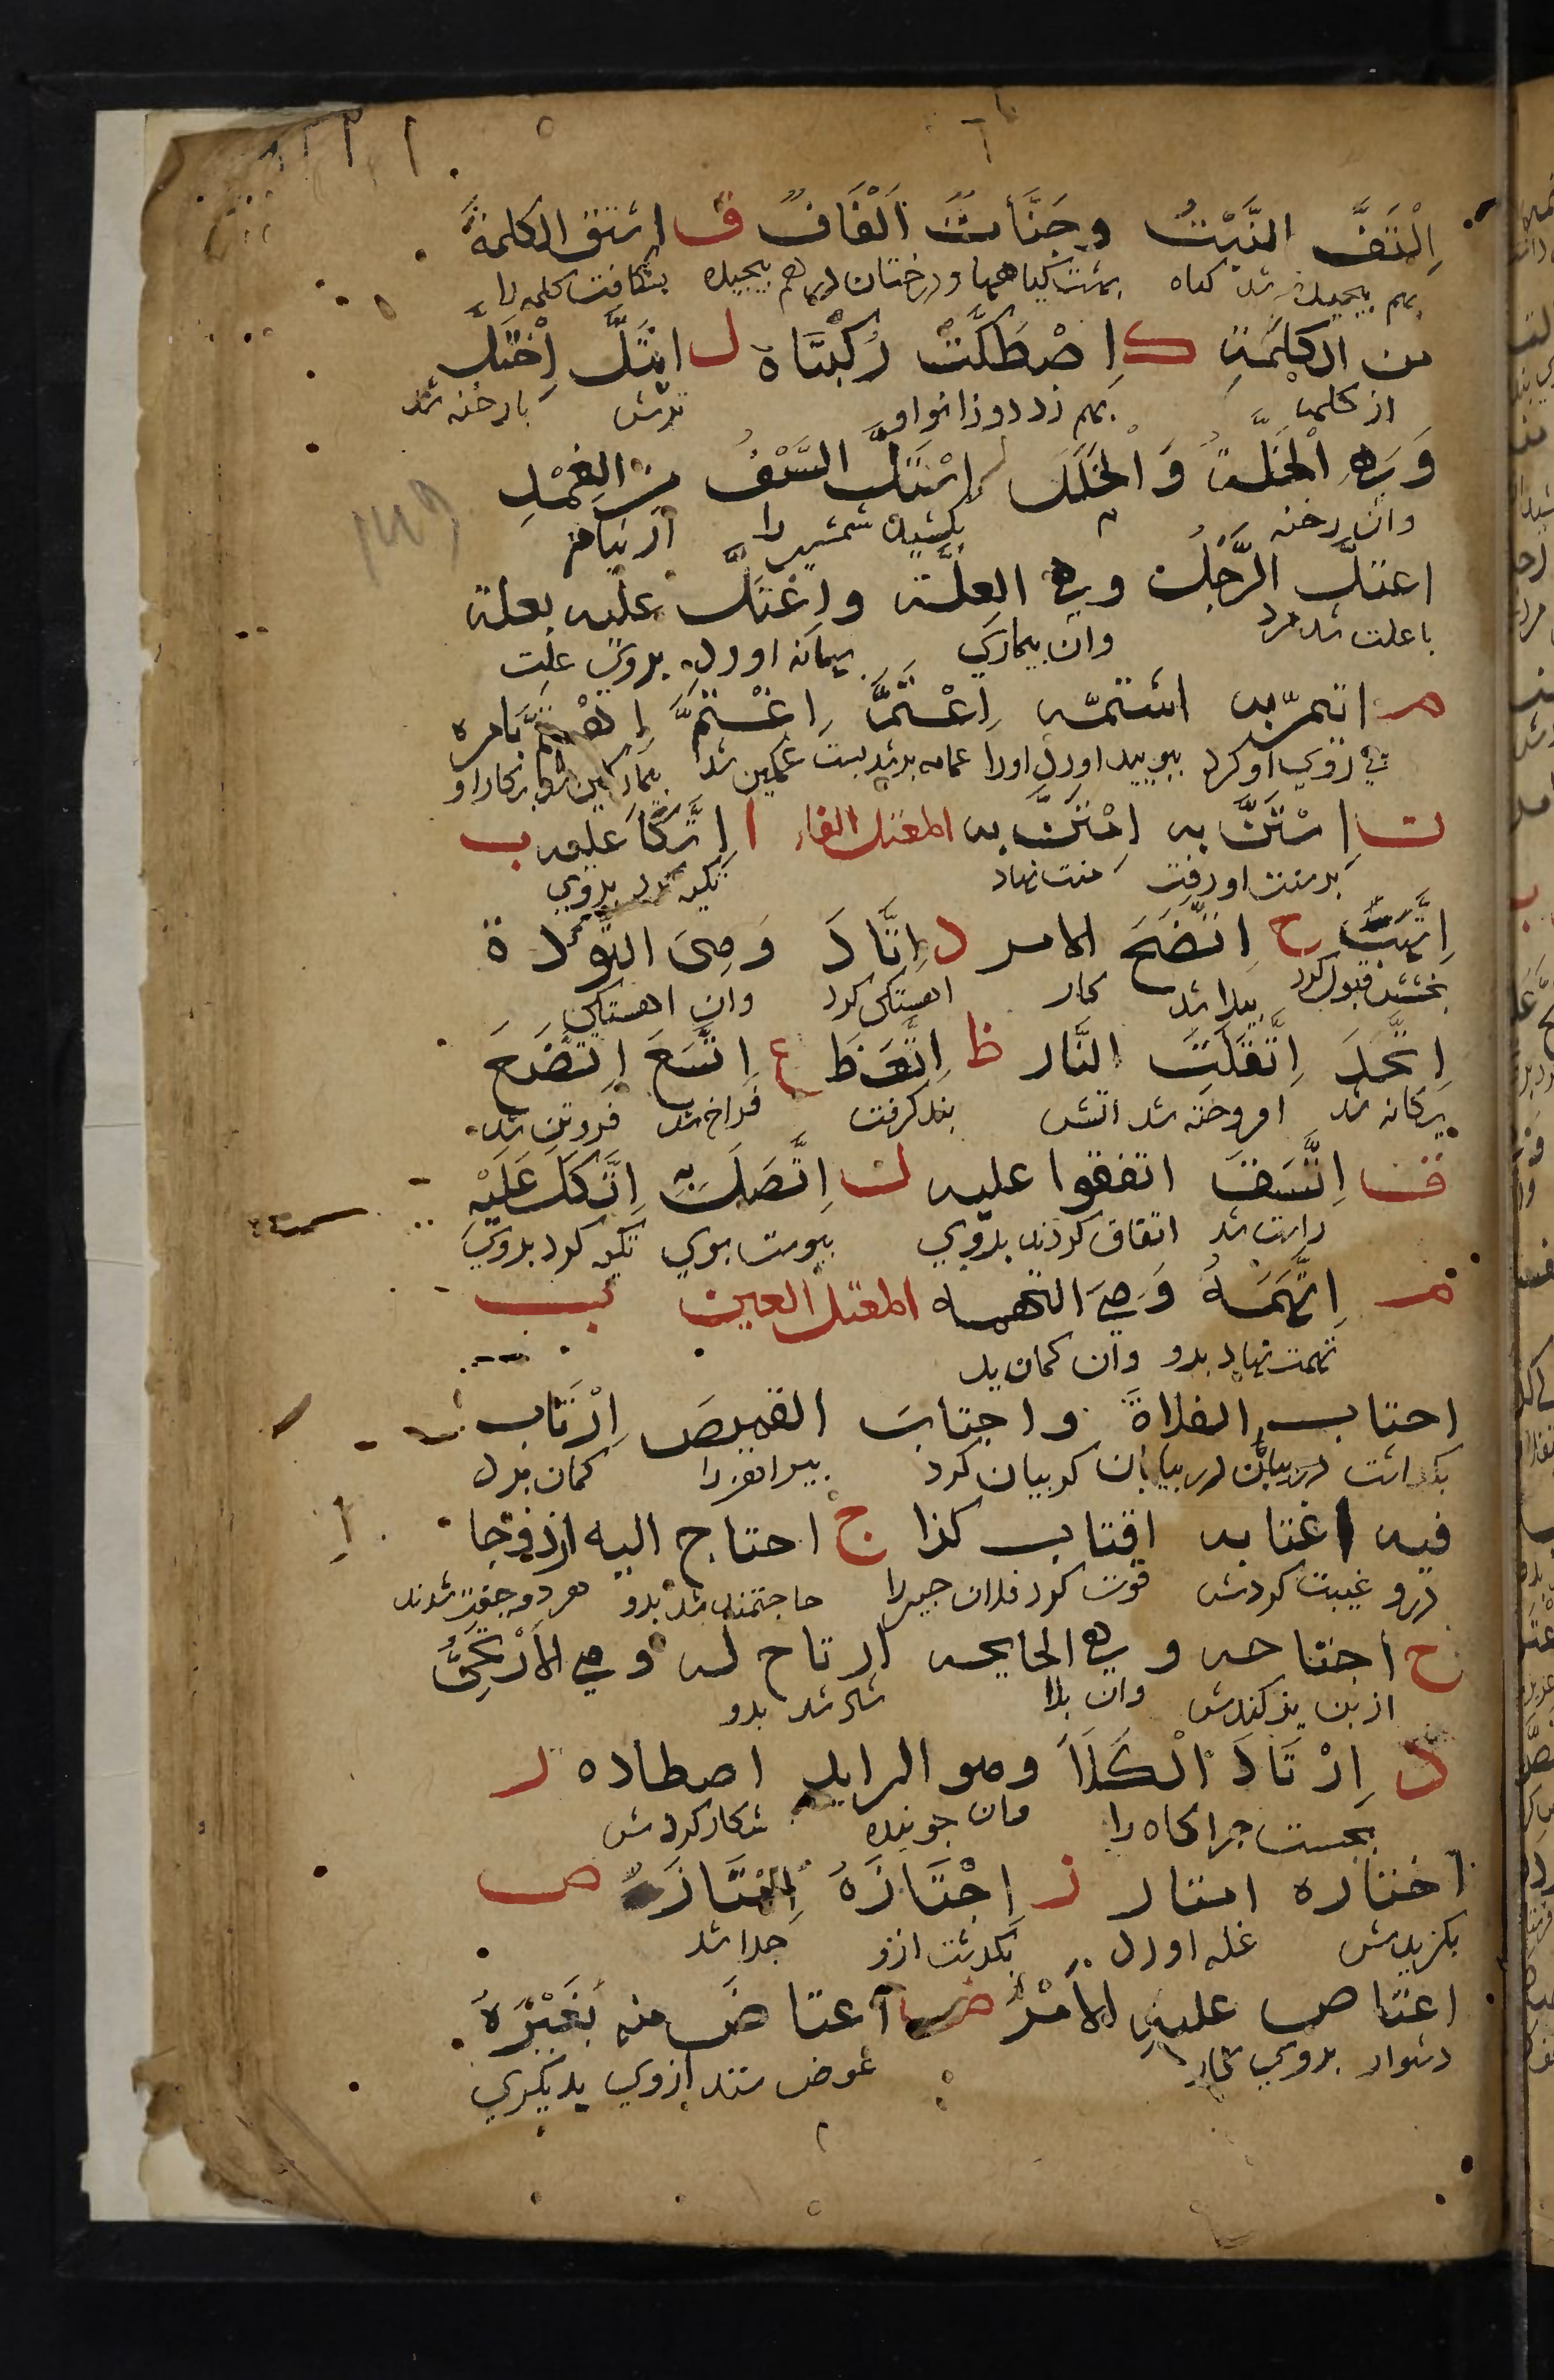 اِلْتَفَّ النَّبْتُ وجَنَّاتٌ اَلْفَافٌ ق اشتق الكلمةَ
بهم پیچیده شد کیاه بهشت کیاهها ودرختان درهم پیچیده بشکافت کلمه را
من الكلمَةِ ك اِصْطَكَّتْ رُكْبَتَاهُ ل ابْتَلَّ اِخْتَلَّ
از کلمه بهم زد دو زانو او ترشد با رخنه شد
وَهِيَ الْخَلَّةُ وَالْخَلَلُ اِسْتَلَّ السَّيْفَ من الغِمْدِ
وان رخنه بکشید شمشیر را از نیام
اعتلَّ الرَّجُلُ وهي العلَّة واعْتَلَّ عليه بعلة
با علت شد مرد وان بیماری بهانه اورد بروی علت
م ائتمّ به اشتمّه اِعْتَمَّ اِغْتَمَّ اِهْتَمَّ بامره
پی روی او کرد ببویید اورا عمامه بست غمکین شد
ن اِسْتَنَّ به اِمْتَنَّ به المعتل الفاء ا اِتَّكَأَ عليه ب
بر سنت او رفت منت نهاد تکیه کرد بروی
اِتَّهَبَ ح اِتَّضَحَ الامر د اِتَّأَدَ وَهِيَ التُّؤَدة
بخشش قبول کرد پیدا شد کار اهستکی کرد وان اهستکی
اِتَّحَدَ اِتَّقَدَتِ النَّار ظ اِتَّعَظَ ع اِتَّسَعَ اِتَّضَعَ
یکانه شد افروخته شد اتش پند کرفت فراخ شد فروتن شد
ق اِتَّسَقَ اتفقوا عليه ل اِتَّصَلَ بِهِ اِتَّكَلَ عَلَيْهِ
راست شد اتفاق کردند بروی پیوست بوی تکیه کرد بروی
م اِتَّهَمَهُ وَهِيَ التهمه المعتل العين ب
تهمت نهاد بدو وان کمان بد
اجتاب الفلاةَ واجتابَ القميصَ اِرْتَاب
بکذاشت در بیابان کریبان کرد پیراهن را کمان برد
فيه اغتابه اقتاب كذا ج احتاج اليه ازدوجا
درو غیبت کردش قوت کرد فلان چیز را حاجتمند شد بدو هر دو جفت شدند
ح اجتاحه وهي الجايحه ارتاح له وهي الأَرْيَحِيَّةُ
از بن برکندش وان بلا شاد شد بدو
د اِرْتَادَ الْكَلَأَ وهو الرايد اصطاده ر
بجست چراکاه را وان جوینده شکار کردش
اختاره امتار ز اِجْتَازَهُ اِمْتَازَهُ ص
بکزیدش غله اورد بکذشت ازو جدا شد
اعتاص عليهِ الأَمْرُ ض اعتاض منه بغَيْرِهِ
دشوار بروی کار عوض ستد ازوی بدیکری